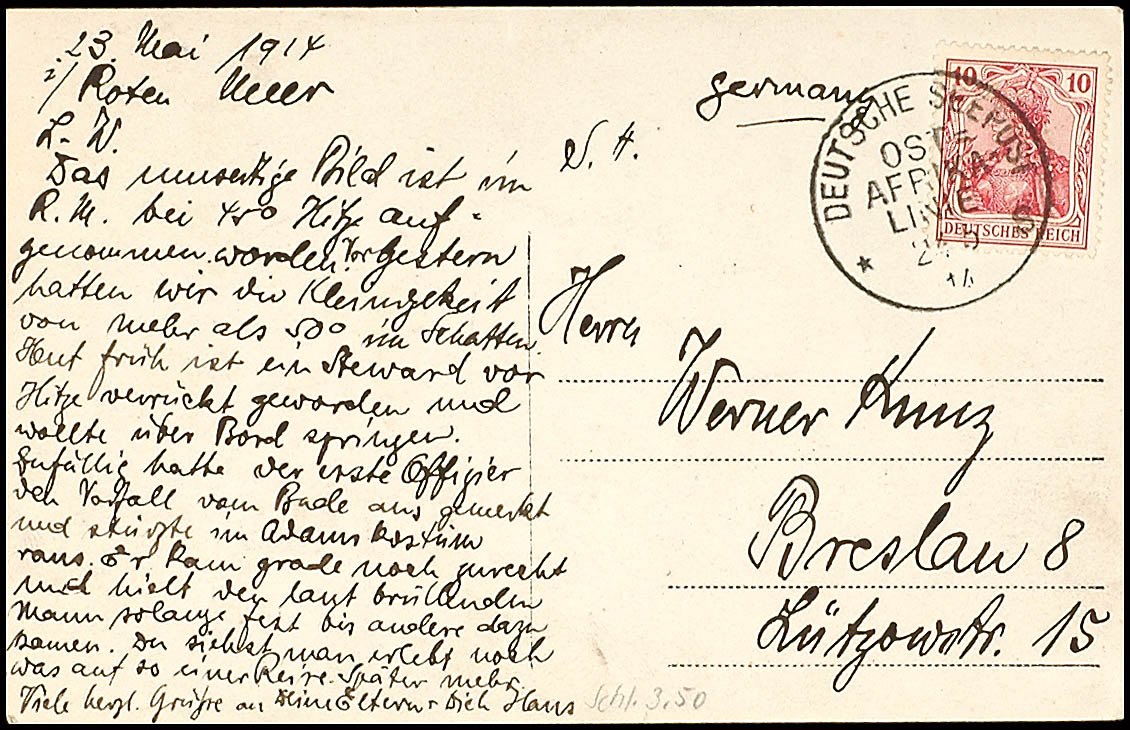 23. Mai 1914
i/ Roten Meer
L. W.
Das umseitige Bild ist im
R. M. bei 45° Hitze auf-
genommen worden. Vorgestern
hatten wir die Kleinigkeit
von mehr als 50° im Schatten.
Heut früh ist ein Steward vor
Hitze verrückt geworden und
wollte über Bord springen.
Zufällig hatte der erste Offizier
den Vorfall vom Bade aus gemerkt
und stürzte im Adamskostüm
raus. Er kam grade noch zurecht
und hielt den laut brüllenden
Mann solange fest bis andere dazu
kamen. Du siehst man erlebt noch
was auf so einer Reise. Später mehr.
Viele herzl. Grüsse an Deine Eltern u Dich Hans
Germany
Herrn
Werner Kunz
Breslau 8
Lützowstr. 15
10 10
DEUTSCHES REICH
DEUTSCHE SEEPOST
OST-
AFRIKA-
LINIE
S
14
Schl. 3.50